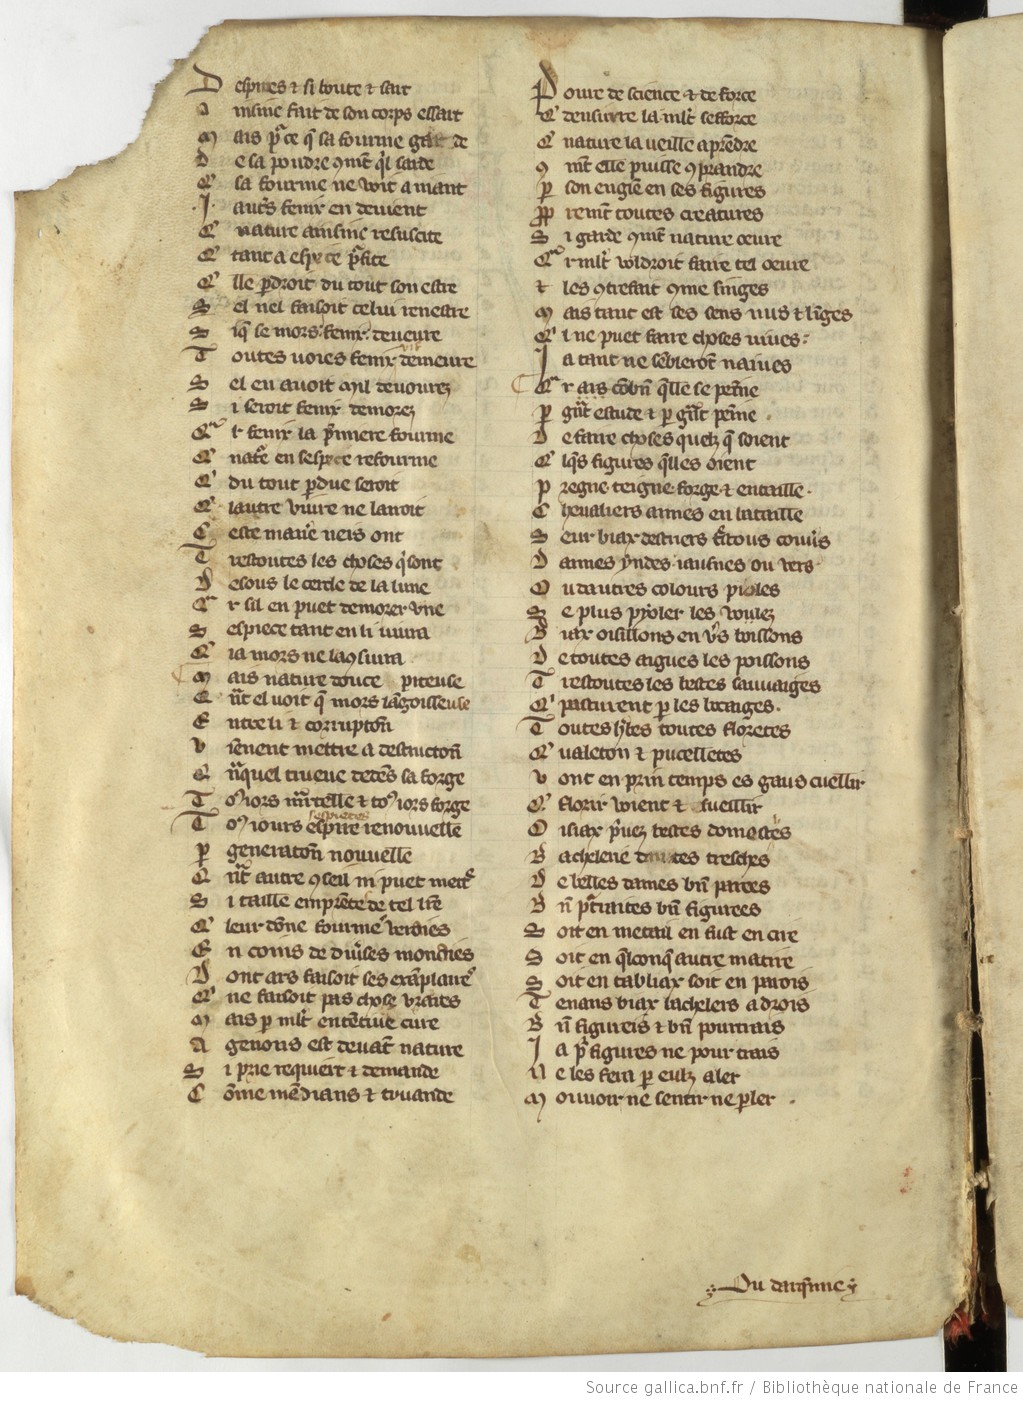 D espices & si boute & saut
A insinc fait de son corps essaut
M ais p̃ ce q̃ sa fourme garde
D e sa poudre ꝯmẽt q̃l sarde
E sa fourme ne voit a mant
.I. autʳs fenix en deuient
E nature ainsinc resuscite
E tant a espece ꝓfite
E lle ꝑdroit du tout son estre
S el nel faisoit celui renestre
S iq̃ se mors fenix deueure
T outes voies fenix vif demeure
S el en auoit mil deuourez
S i seroit fenix demorez
C r fenix la pʳmiere fourme
Q̃ natʳe en sespece refourme
E du tout ꝑdue seroit
Q̃ lautre viure ne lairoit
C este maniʳe vers ont
T restoutes les choses q̃ sont
D esous le cercle de la lune
C r sil en puet demorer vne
S espiece tant en li viura
Q̃ ia mors ne laꝯsiura
M ais nature douce piteuse
Q̃ nt̃ el voit q̃ mors langoisseuse
E ntre li & corruptoñ
V ienent mettre a destructoñ
Q̃ nq̃uel trueue dedẽs sa forge
T oꝰiors mʳtelle & toꝰiors forge
T oꝰiours sespieces espire renouuelle
P generatoñ nouuelle
Q̃ nt̃ autre ꝯseil ni puet mettʳ
S i taille emprẽte de tel lrẽ
Q̃ leur dõne fourme veraies
E n coins de diuʳses monoies
D ont ars faisoit ses exãplaireˢ
Q̃ ne faisoit pas chose vraies
M ais ꝑ mlt̃ entẽtiue cure
A genous est deuãt nature
S i prie requiert & demande
C õme mẽdians & truande
P oure de science & de force
Q̃ densiure la mlt̃ sefforce
Q̃ nature la veille aprẽdre
ꝯ mẽt elle puisse ꝯprandre
P son engiẽ en ses figures
Pp remt̃ toutes creatures
S i garde ꝯmẽt nature oeure
C r mlt̃ voldroit faire tel oeure
& les ꝯtrefait ꝯme singes
M ais tant est ses sens nus & linges
Q̃ i ne puet faire choses viues
I a tant ne sẽbleront naiues
C r ars cõbñ q̃lle se peine
P gñt estude & ꝑ gñt peine
D e faire choses quelz q̃ soient
Q̃ lq̃s figures q̃lles oient
P regne teigne forge & entaille
C heualiers armes en bataille
S eur biax destriers t̃stous couuʳs
D armes yndes iausnes ou vers
O u dautres colours pioles
S e plus pyoler les voulez
B iax oisillons en vʳs boissons
D e toutes aigues les poissons
T restoutes les bestes sauuaiges
Q̃ pasturent ꝑ les boscaiges
T outes hʳbes toutes floretes
Q̃ valeton & pucelletes
V ont en prin temps es gaus cueillir
Q̃ florir voient & fueillir
O isiax pʳuez bestes domesteˢ
B acheleries tresches
D e belles dames bñ parees
B ñ ptʳaites bñ figurees
S oit en metail en fust en cire
S oit en q̃lconq̃ autre matire
S oit en tabliax soit en parois
T enans biax bachelers a drois
B ñ figureis & bñ pourtrais
I a pʳ figures ne pour trais
N e les fera ꝑ eulz aler
M ouuoir ne sentir ne ꝑler